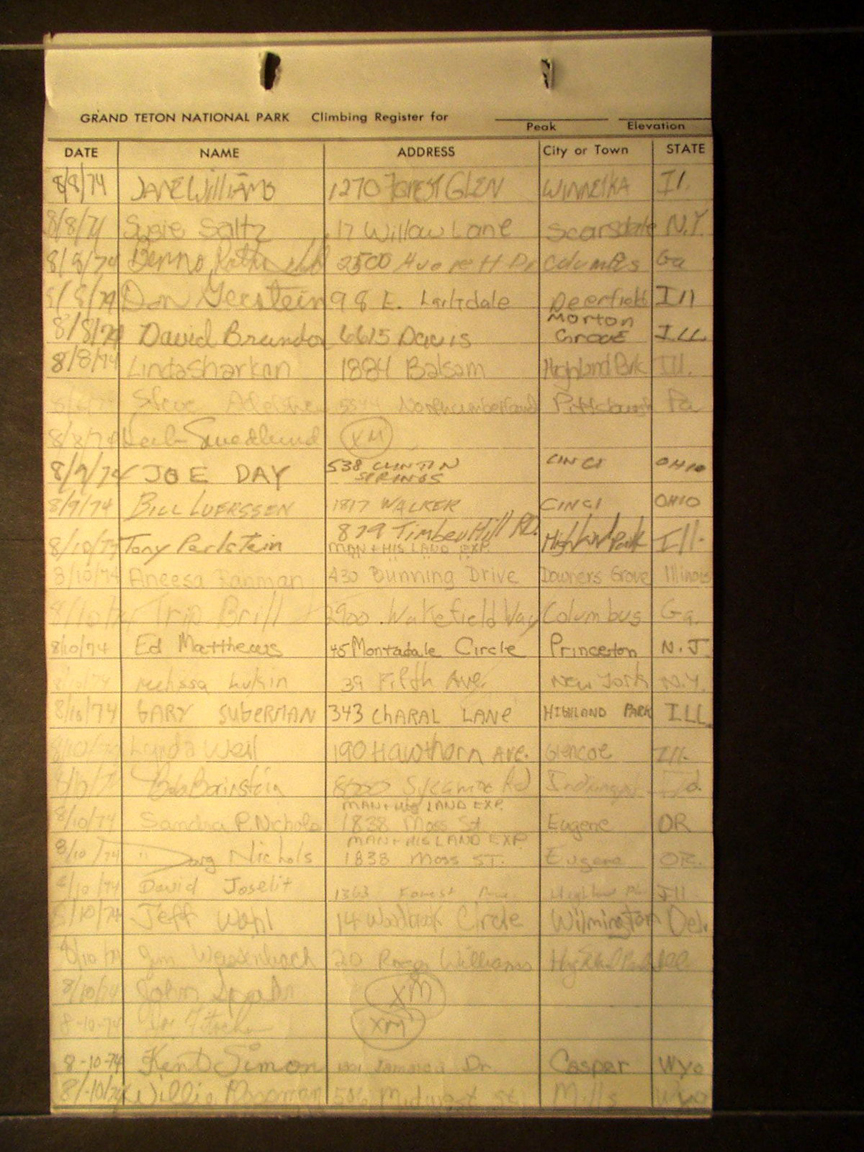 GRAND TETON NATIONAL PARK Climbing Register for
Peak Elevation
DATE NAME ADDRESS City or Town STATE
8/8/74 JANE Williams 1270 FOREST GLEN WINNETKA Il.
8/8/71 Susie Saltz 17 Willow Lane Scarsdale N.Y.
8/8/74 2500 Dr Columbus Ga
8/8/74 Don Gerstein 98 E. Deerfield Ill
8/8/74 David Brandon 6615 Davis Morton Grove ILL
8/8/74 Linda Sharkan 1884 Balsam Highland Park Ill.
Steve Northumberland Pittsburgh Pa
8/8/74 Swedlund XM
8/9/74 JOE DAY 538 CLINTIN SPRINGS CINCI OHIO
8/9/74 BILL LUERSSEN 1817 WALKER CINCI OHIO
8/10/74 Tony Perlstein 879 Timber Hill RD. Highland Park Ill.
MAN & HIS LAND EXP.
8/10/74 Aneesa Rahman 430 Bunning Drive Downers Grove Illinois
8/10/74 Trip Brill 2900 Wakefield Way Columbus Ga.
8/10/74 Ed Matthews 45 Montadale Circle Princeton N.J.
8/10/74 Melissa Lukin 39 Fifth Ave. New York N.Y.
8/10/74 GARY SUBERMAN 343 CHARAL LANE HIGHLAND PARK ILL
8/10/74 Lynda Weil 190 Hawthorn Ave. Glencoe Ill.
Bob Sycamore Rd
MAN & HIS LAND EXP.
8/10/74 Sandra P. Nichols 1838 Moss St. Eugene OR
MAN & HIS LAND EXP.
8/10/74 " Doug Nichols 1838 MOSS ST. Eugene OR.
8/10/74 David Joselit 1363 Forest Ave. Highland Pk Ill
8/10/74 Jeff Wahl 14 Circle Wilmington Del.
8/10/74 Jim 20 Roger Williams Highland Park Ill.
8/10/74 John XM
8-10-74 XM
8-10-74 Kent Simon Jamaica Dr Casper Wyo
8/-10/74 Willie 506 Midwest st Mills Wyo